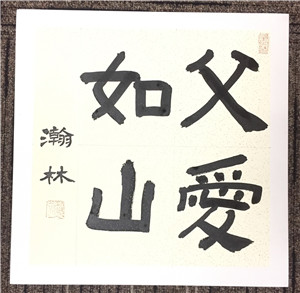 父愛
如山
瀚林